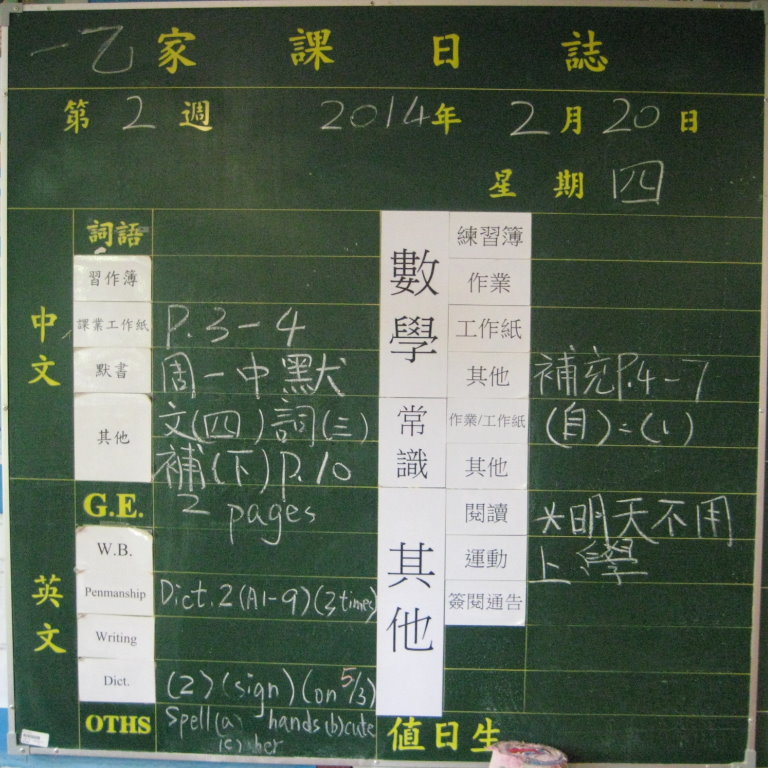 一乙家課日誌
第2週 2014年2月20日
星期四
中文
詞語
習作簿
課業工作紙 P.3-4
默書 周一中默
其他 文(四)詞(三)
補(下)P.10
英文
G.E. 2 pages
W.B.
Penmanship Dict. 2 (A1-9) (3 times)
Writing
Dict. (2) (sign) (on 5/3)
OTHS Spell (a) hands (b) cute
(c) her
數學
練習簿
作業
工作紙
其他 補充P.4-7
常識
作業/工作紙 (自)=(1)
其他
其他
閱讀 *明天不用
運動 上學
簽閱通告
值日生